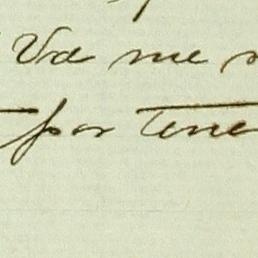 Vd me
por tene